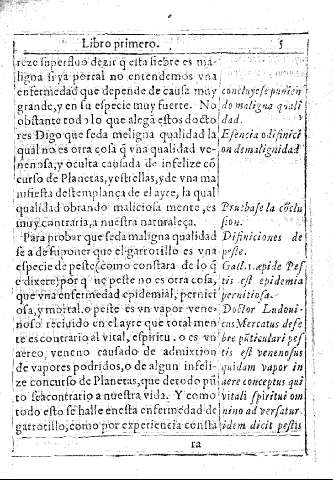 Libro primero. 5
reze superfluo dezir q̃ esta fiebre es ma-
ligna si ya por tal no entendemos vna
enfermedad que depende de causa muy
grande, y en su especie muy fuerte. No
obstante todo lo que alegã estos docto
res Digo que se da maligna qualidad la
qual no es otra cosa q̃ vna qualidad ve-
nenosa, y oculta causada de infelize cõ
curso de Planetas, y estrellas, y de vna ma
nifiesta destemplança de el ayre, la qual
qualidad obrando maliciosa mente, es
muy contraria, a nuestra naturaleça.
Para probar que se da maligna qualidad
se a de suponer que el garrotillo es vna
especie de peste; como constara de lo q̃
e dixere; por q̃ ne peste no es otra cosa,
que vna enfermedad epidemial, pernici
osa, y mortal. o peste es vn vapor vene-
noso recluido en el ayre que total men
te es contrario al vital, espiritu. o es vn
aereo veneno causado de admixtion
de vapores podridos, o de algun infeli-
ze concurso de Planetas, que de todo pũ
to sea contrario a nuestra vida. Y como
todo esto se halle en esta enfermedad de
garrotillo, como por experiencia consta
ra
concluyese punien
do maligna quali
dad.
Esencia o difinici
on de malignidad
Pruebase la cõclu
sion.
Difiniciones de
peste.
Gall. 1. æpide Pes
tis est epidemia
pernitiosa.
Doctor Ludoui-
cus Mercatus de fe
bre pũticulari pes
tis est venenosus
quidam vapor in
aere conceptus qui
vitali spiritui om
nino ad versatur.
idem dicit pestis